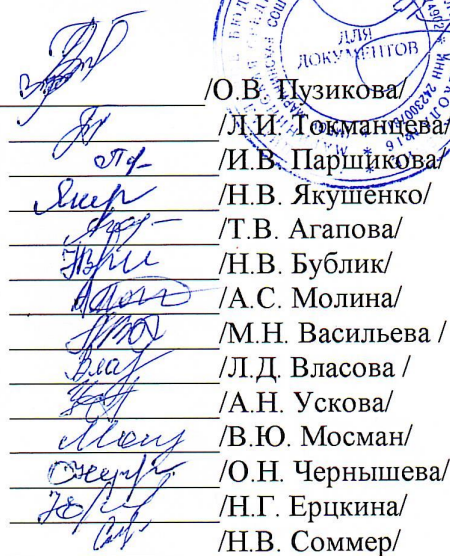 ДЛЯ
ДОКУМЕНТОВ
/О.В. Пузикова/
/Л.И. Токманцева/
/И.В. Паршикова/
/Н.В. Якушенко/
/Т.В. Агапова/
/Н.В. Бублик/
/А.С. Молина/
/М.Н. Васильева /
/Л.Д. Власова /
/А.Н. Ускова/
/В.Ю. Мосман/
/О.Н. Чернышева/
/Н.Г. Ерцкина/
/Н.В. Соммер/